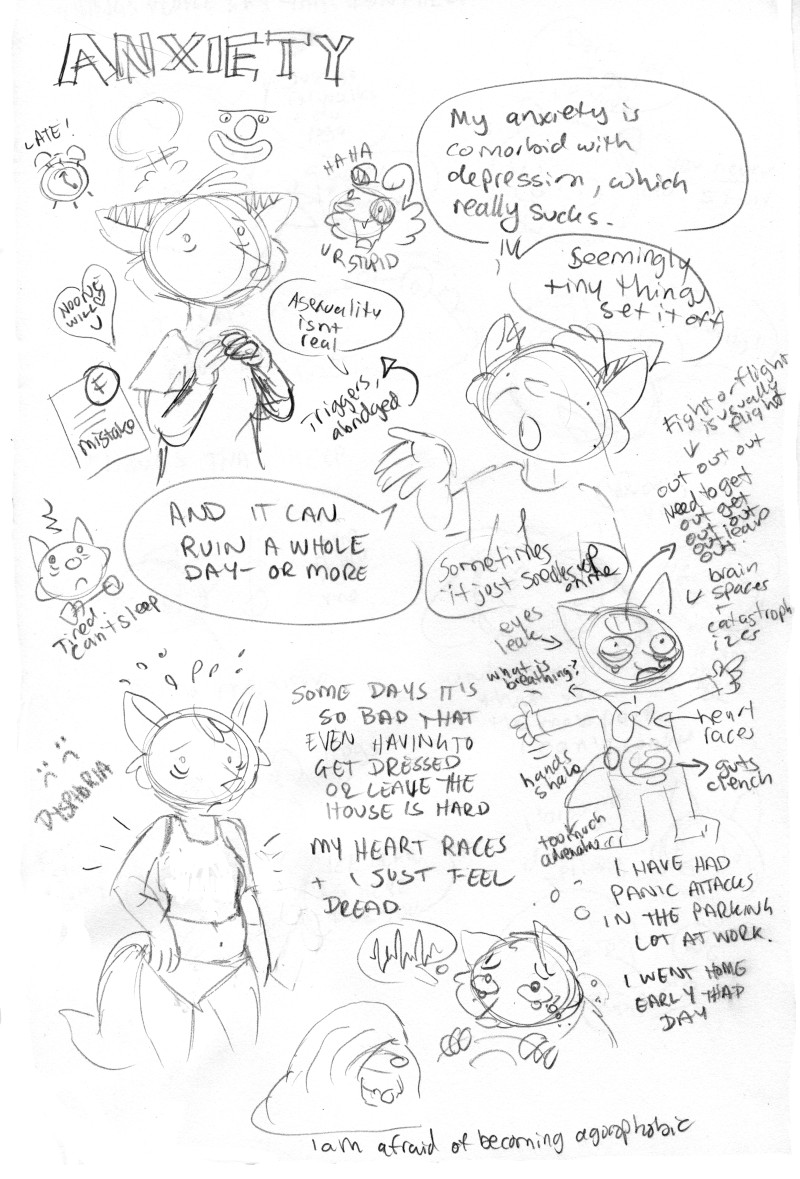 ANXIETY
LATE!
HA-HA
U R STUPID
My anxiety is
comorbid with
depression, which
really sucks.
Seemingly
tiny things
set it off
NO ONE
WILL
U
Asexuality
isnt
real
Triggers,
abridged
F
mistake
Fight or flight
is usually
flight
out out out
Need to get
out get
out out
out leave
out!
AND IT CAN
RUIN A WHOLE
DAY- OR MORE
Sometimes
it just
up
on me
Tired.
can't sleep
brain
spaces
+
catastroph
izes
eyes
leak
what is
breathing?
heart
races
hands
shake
guts
clench
too much
adrenaline
DYSPHORIA
SOME DAYS IT'S
SO BAD THAT
EVEN HAVING TO
GET DRESSED
OR LEAVE THE
HOUSE IS HARD
MY HEART RACES
+ I JUST FEEL
DREAD
I HAVE HAD
PANIC ATTACKS
IN THE PARKING
LOT AT WORK.
I WENT HOME
EARLY THAT
DAY
i am afraid of becoming agoraphobic